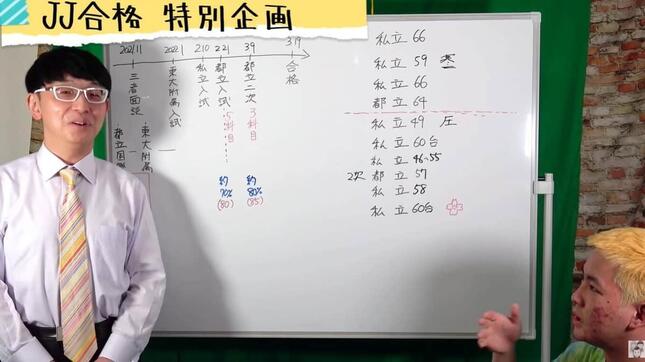 JJ合格 特別企画
2021/11
2022/1
2.10
2.21
3.9
3.19
三者面談
東大附属入試
私立入試
都立入試
5科目
都立二次
3科目
合格
都立国際
東大附属
約
70%
(80)
約
80%
(85)
私立 66
私立 59
私立 66
都立 64
私立 49 圧
私立 60台
私立 46~55
2次 都立 57
私立 58
私立 60台